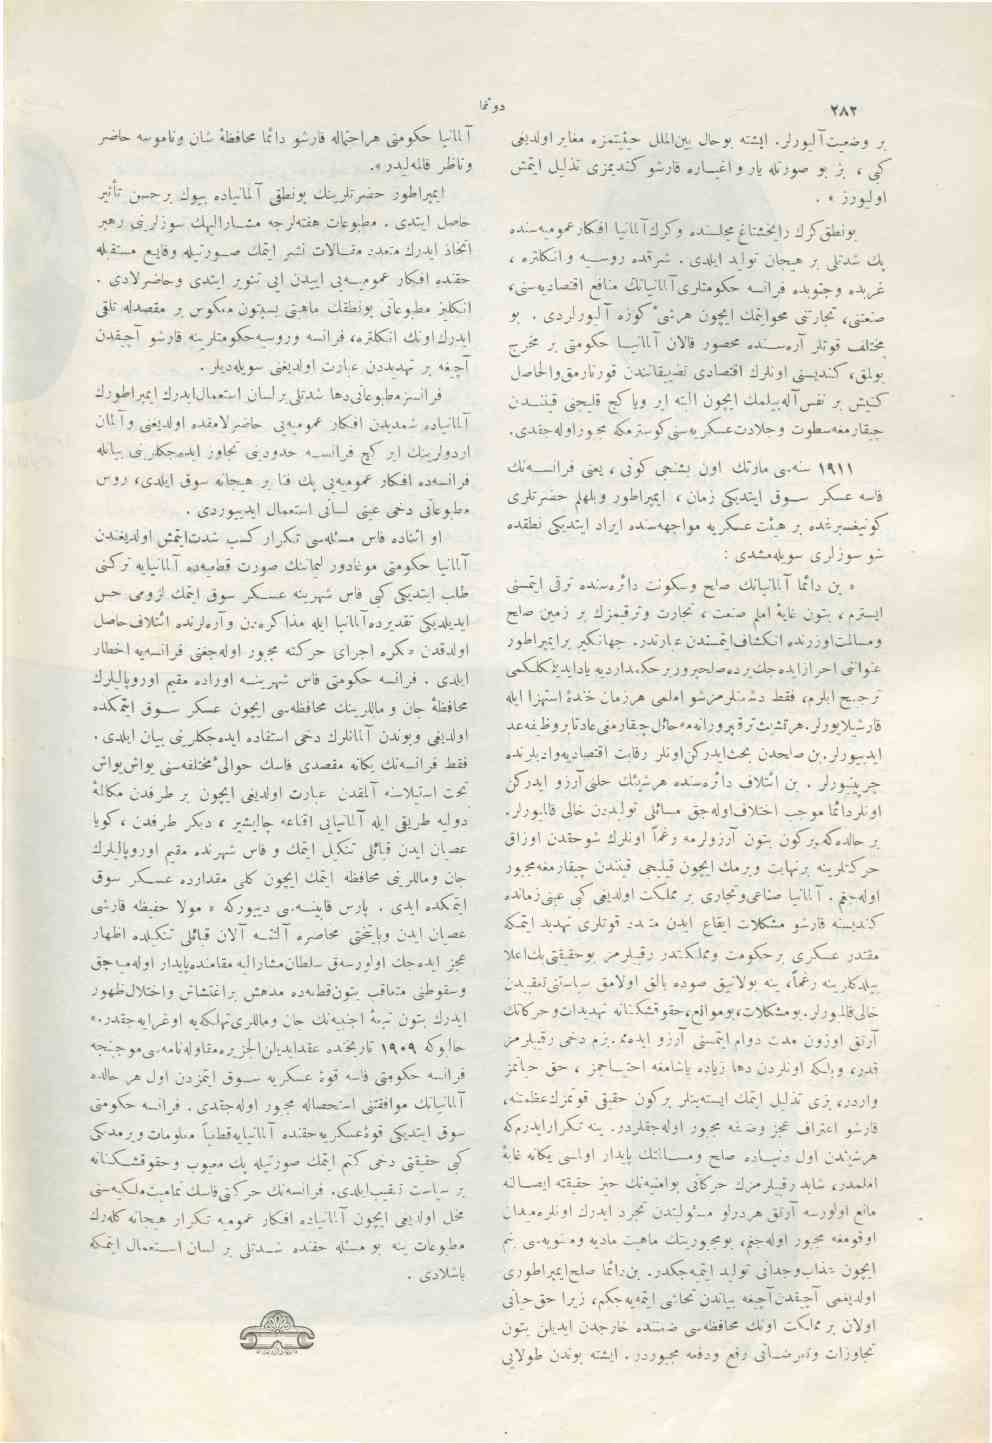 ٢٨٢
دوننما
بر وضعیت آلیورلر. ایشته بو حال بین‌الملل حیثیتمزه مغایر اولدیغی
کبی ، بز بو صورتله یار و اغیاره قارشو کندیمزی تذلیل ایتمش
اولیورز »
بو نطق کرك رایخشتاغ مجلسنده و کرك آلمانیا افکار عمومیه‌سنده
پك شدتلی بر هیجان تولید ایلدی . شرقده روسیه و انکلتره ،
غربده و جنوبده فرانسه حکومتلری آلمانیانك منافع اقتصادیه‌سنی،
صنعتنی، تجارتنی محو ایتمك ایچون هرشیئ کوزه آلیورلردی . بو
مختلف قوتلر آره‌سنده محصور قالان آلمانیا حکومتی بر مخرج
بولمق، کندیسنی اونلرك اقتصادی تضییقاتندن قورتارمق والحاصل
کنیش بر نفس آله‌بیلمك ایچون البته ایر ویا کج قلیجنی قیننـدن
چیقارمغه سطوت و جلادت عسکریه‌سنی کوسترمکه مجبور اوله‌جقدی.
١٩١١ سنه‌سی مارتك اون بشنجی کونی ، یعنی فرانسه‌نك
فاسه عسکر سوق ایتدیکی زمان ، ایمپراطور ویلهلم حضرتلری
کونیغسبرغده بر هیئت عسکریه مواجهه‌سنده ایراد ایتدیکی نطقده
شو سوزلری سویله‌مشدی :
« بن دائما آلمانیانك صلح و سکونت دائره‌سنده ترقی ایتمسنی
ایسترم ، بتون غایهٔ املم صنعت ، تجارت و ترقیمزك بر زمین صلح
و مسالمت اوزرنده انکشاف ایتمسندن عبارتدر. جهانکیر بر ایمپراطور
عنوانی احراز ایده‌جك یرده صلحپرور بر حکمدار دیه یاد ایدیلمکلکمی
ترجیح ایلرم، فقط دشمنلرمز شو املمی هرزمان خندهٔ استهزا ایله
قارشیلایورلر. هر تشبث ترقیپرورانه‌مه حائل چیقارمغی عادتا بر وظیفه عد
ایدییورلر. بن صلحدن بحث ایدرکن اونلر رقابت اقتصادیه وادیلرنده
چرپینیورلر . بن ائتلاف دائره‌سنده هرشیئك حلنی آرزو ایدرکن
اونلر دائما موجب اختلاف اوله‌جق مسائلی تولیددن خالی قالمیورلر.
بر حالده‌که بر کون بتون آرزولرمه رغماً اونلرك شوحقدن اوزاق
حرکتلرینه بر نهایت ویرمك ایچون قیلیجی قیندن چیقارمغه مجبور
اوله‌جغم . آلمانیا صناعی و تجاری بر مملکت اولدیغی کبی عینی زمانده
کندیسنه قارشو مشکلات ایقاع ایدن متعدد قوتلری تهدید ایتمکه
مقتدر عسکری بر حکومت و مملکتدر رقیبلرمز بو حقیقتی پك اعلا
بیلدکلرینه رغماً، ینه بولانیق صوده بالق اولامق سیاستنی تعقیبدن
خالی قالمیورلر. بو مشکلات، بو موانع، حقوقشکنانه تهدیدات و حرکاتك
آرتق اوزون مدت دوام ایتمسنی آرزو ایده‌مم. بزم دخی رقیبلرمز
قدر، و بلکه اونلردن دها زیاده یاشامغه احتیاجمز ، حق حیاتمز
واردر، بزی تذلیل ایتمك ایسته‌ینلر برکون حقیقی قوتمزك عظمتنه،
قارشو اعتراف عجز و ضعفه مجبور اوله‌جقلردر. ینه تکرار ایدرم که
هرشیئدن اول دنیـاده صلح و مسـالمتك پایدار اولمسی یکانه غایهٔ
املمدر، شاید رقیبلرمزك حرکاتی بو امنیه‌نك حیز حقیقته ایصـالنه
مانع اولورسه آرتق هر درلو مسئولیتدن تجرد ایدرك اونلره میدان
اوقومغه مجبور اوله‌جغم، بو مجبوریتك ماهیت مادیه و معنویه‌سی بنم
ایچون عذاب وجدانی تولید ایتمیه‌جکدر. بن دائما صلح ایمپراطوری
اولدیغمی آچیقدن آچیغه بیاندن تحاشی ایتمه‌یه‌جکم، زیرا حق حیاتی
اولان بر مملکت اونك محافظه‌سی ضمننده خارجدن ایدیلن بتون
تجاوزات و تعرضاتی رفع و دفعه مجبوردر. ایشته بوندن طولایی
آلمانیا حکومتی هر احتماله قارشو دائما محافظهٔ شان و ناموسه حاضر
و ناظر قالمه‌لیدر ».
ایمپراطور حضرتلرینك بو نطقی آلمانیاده بیوك بر حسن تأثیر
حاصل ایتدی . مطبوعات هفته‌لرجه مشارالیهك سوزلرینی رهبر
اتخاذ ایدرك متعدد مقـالات نشر ایتمك صـورتیله وقایع مستقبله
حقنده افکار عمومیه‌یی اییدن ایی تنویر ایتدی و حاضرلادی .
انکلیز مطبوعاتی بو نطقك ماهیتی بسبتون معکوس بر مقصدله تلقی
ایدرك اونك انکلتره، فرانسه و روسیه حکومتلرینه قارشو آچیقدن
آچیغه بر تهدیددن عبارت اولدیغنی سویله‌دیلر.
فرانسز مطبوعاتی دها شدتلی بر لسان استعمال ایدرك ایمپراطورك
آلمانیاده شمدیدن افکار عمومیه‌یی حاضرلامقده اولدیغنی و آلمان
اردولرینك ایر کج فرانسه حدودینی تجاوز ایده‌جکلرینی بیانله
فرانسه‌ده افکار عمومیه‌یی پك فنا بر هیجانه سوق ایلدی، روس
مطبوعاتی دخی عینی لسانی استعمال ایدییوردی .
او اثناده فاس مسئله‌سی تکرار کسب شدت ایتمش اولدیغندن
آلمانیا حکومتی موغادور لیماننك صورت قطعیه‌ده آلمانیایه ترکنی
طلب ایتدیکی کبی فاس شهرینه عسـکر سوق ایتمك لزومی حس
ایدیلدیکی تقدیرده آلمانیا ایله مذاکره‌دن و آره‌لرنده ائتلاف حاصل
اولدقدن صکره اجرای حرکته مجبور اوله‌جغنی فرانسه‌یه اخطار
ایلدی . فرانسه حکومتی فاس شهرینـه اوراده مقیم اوروپالیلرك
محافظهٔ جان و ماللرینك محافظه‌سی ایچون عسکر سـوق ایتمکده
اولدیغی و بوندن آلمانلرك دخی استفاده ایده‌جکلرینی بیان ایلدی.
فقط فرانسه‌نك یکانه مقصدی فاسك حوالی مختلفه‌سنی یواش یواش
تحت استیلاسنه آلمقدن عبارت اولدیغی ایچون بر طرفدن مکالمهٔ
دولیه طریقی ایله آلمانیایی اقناعه چالیشیر ، دیکر طرفدن ، کویا
عصیان ایدن قبائلی تنکیل ایتمك و فاس شهرنده مقیم اوروپالیلرك
جان و ماللرینی محافظه ایتمك ایچون کلی مقدارده عسـکر سوق
ایتمکده ایدی . پارس قابینـه‌سی دییورکه « مولا حفیظه قارشی
عصیان ایدن و پایتختی محاصره آلتنـه آلان قبائلی تنکیلده اظهار
عجز ایده‌جك اولورسه‌ق سلطان مشارالیه مقامنده پایدار اوله‌میه‌جق
و سقوطنی متعاقب بتون قطعه‌ده مدهش بر اغتشاش و اختلال ظهور
ایدرك بتون تبعهٔ اجنبیه‌نك جان و ماللری تهلکه‌یه اوغرایه‌جقدر.»
حالبوکه ١٩٠٩ تاریخنده عقد ایدیلن الجزیره مقاوله‌نامه‌سی موجبنجه
فرانسه حکومتی فاسه قوهٔ عسکریه سـوق ایتمزدن اول هر حالده
آلمانیانك موافقتنی استحصاله مجبور اوله‌جقدی . فرانسه حکومتی
سوق ایتدیکی قوهٔ عسکریه حقنده آلمانیایه قطعیاً معلومات ویرمدیکی
کبی حقیقتی دخی کتم ایتمك صورتیله پك معیوب و حقوقشـکنانه
بر سیاست تعقیب ایلدی. فرانسه‌نك حرکتی فاسك تمامیت ملکیه‌سنی
مخل اولدیغی ایچون آلمانیاده افـکار عمومیه تـکرار هیجانه کله‌رك
مطبوعات ینه بو مسئله حقنده شـدتلی بر لسان استعمال ایتمکه
باشلادی .